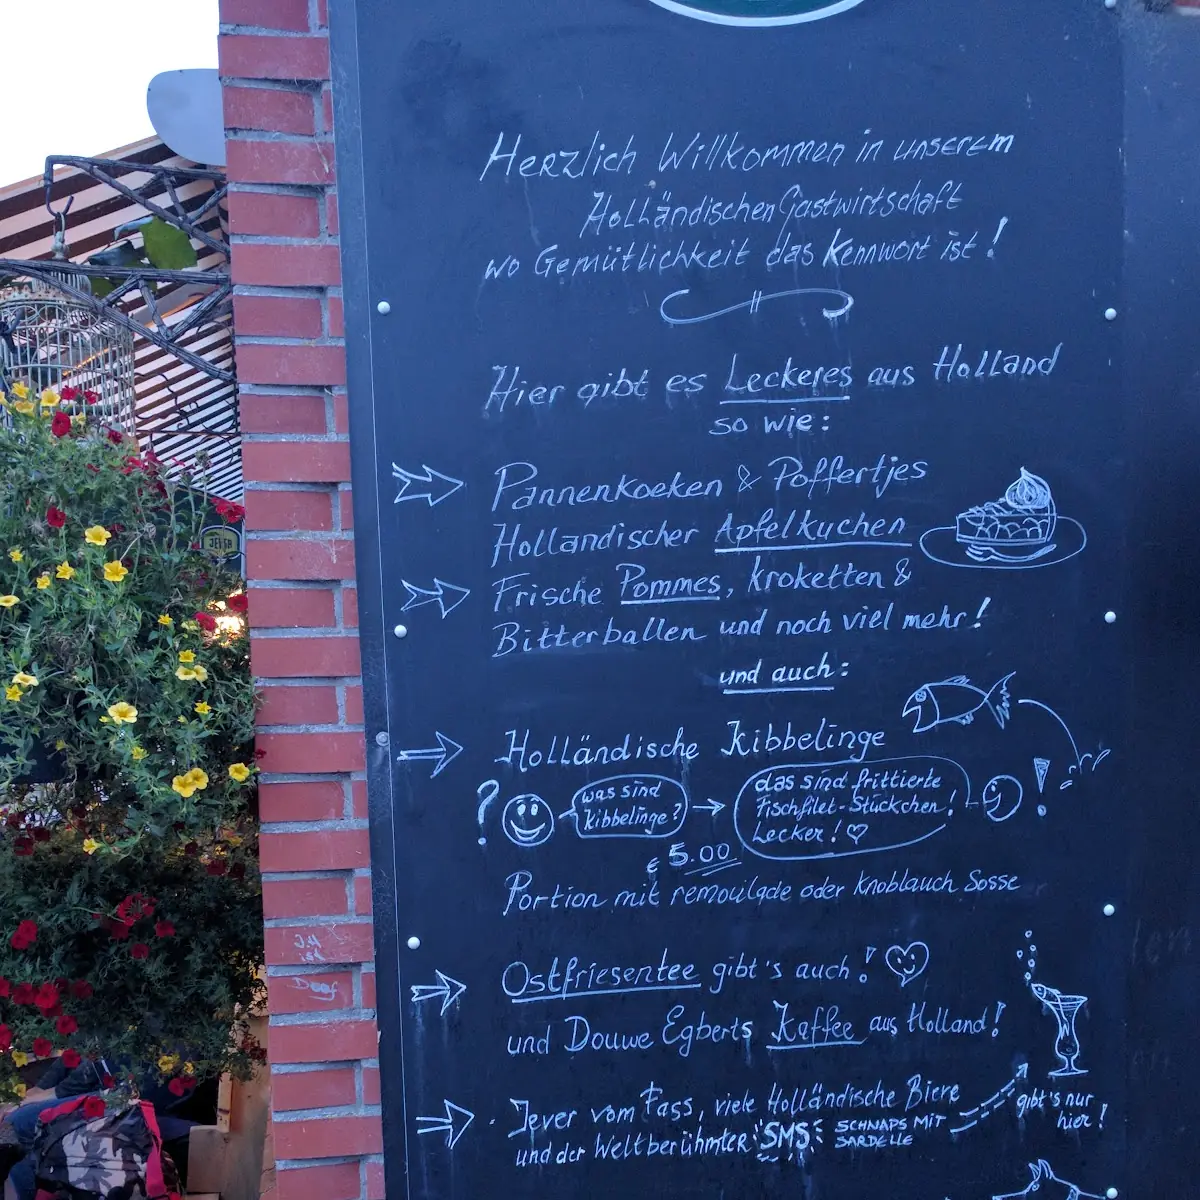 Herzlich Willkommen in unserem
Holländischen Gastwirtschaft
wo Gemütlichkeit das Kennwort ist!
Hier gibt es Leckeres aus Holland
so wie:
Pannenkoeken & Poffertjes
Hollandischer Apfelkuchen
Frische Pommes, Kroketten &
Bitterballen und noch viel mehr!
und auch:
Holländische Kibbelinge
?
was sind
Kibbelinge?
das sind frittierte
Fischfilet-Stückchen!
Lecker!
!
€ 5.00
Portion mit remoulade oder Knoblauch Sosse
Ostfriesentee gibt's auch!
und Douwe Egberts Kaffee aus Holland!
Jever vom Fass, viele Holländische Biere
und der Weltberühmter "SMS" SCHNAPS MIT
SARDELLE
gibt's nur
hier!
JEVER